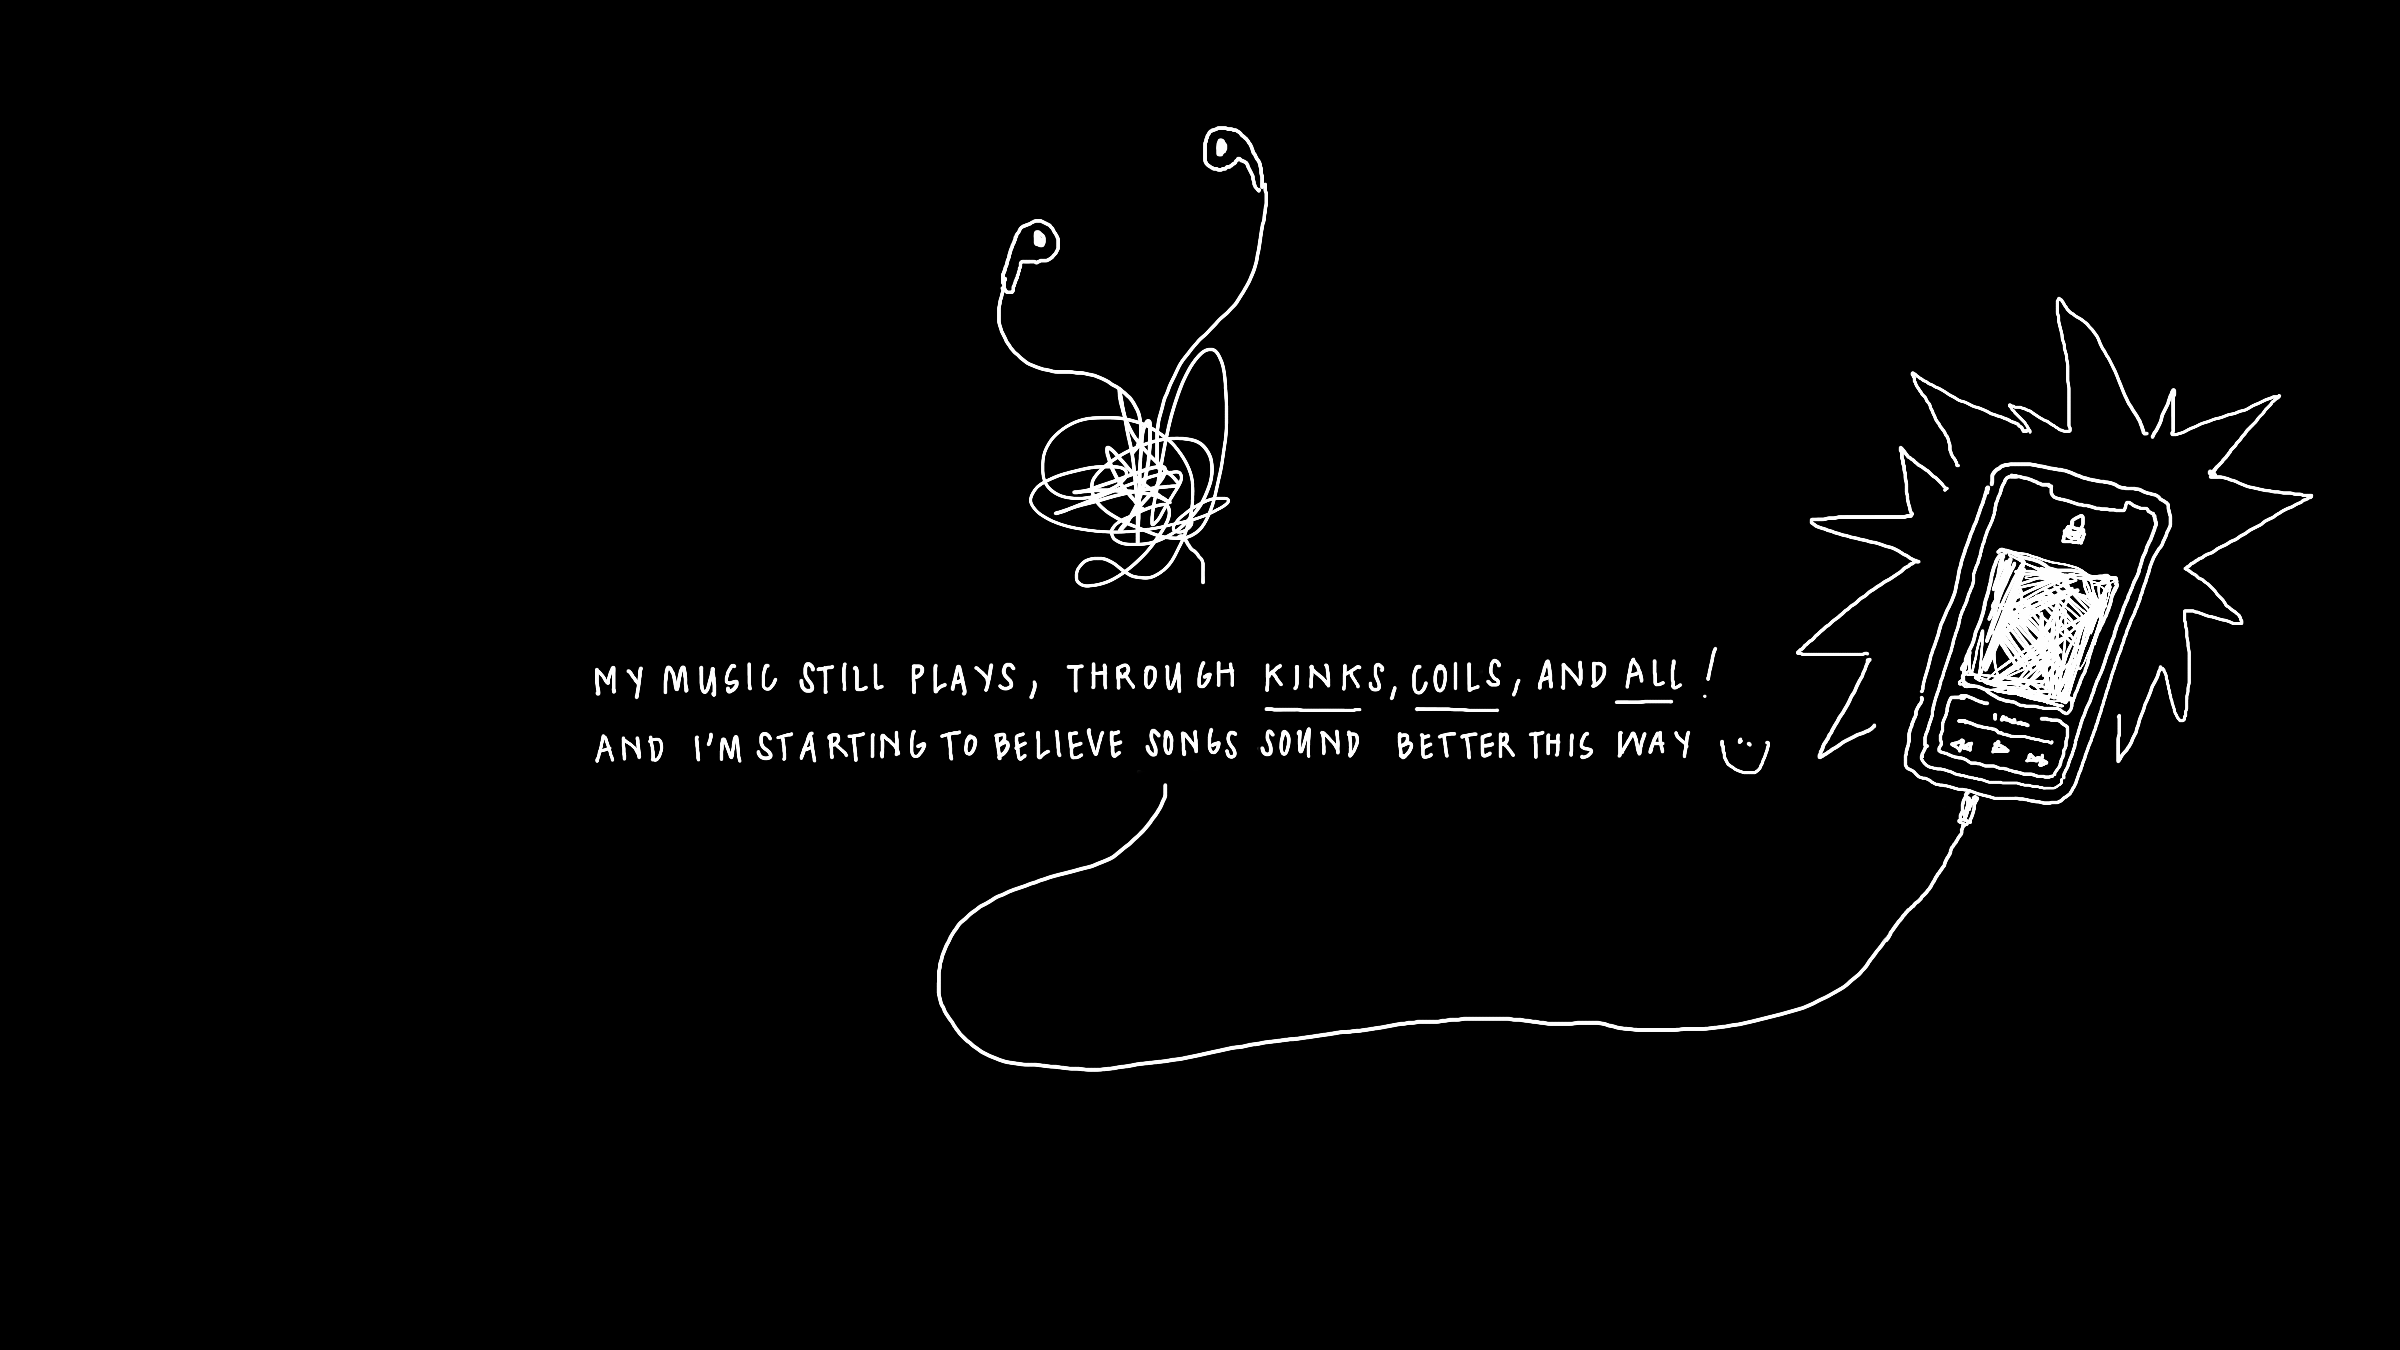 MY MUSIC STILL PLAYS, THROUGH KINKS, COILS, AND ALL!
AND I'M STARTING TO BELIEVE SONGS SOUND BETTER THIS WAY